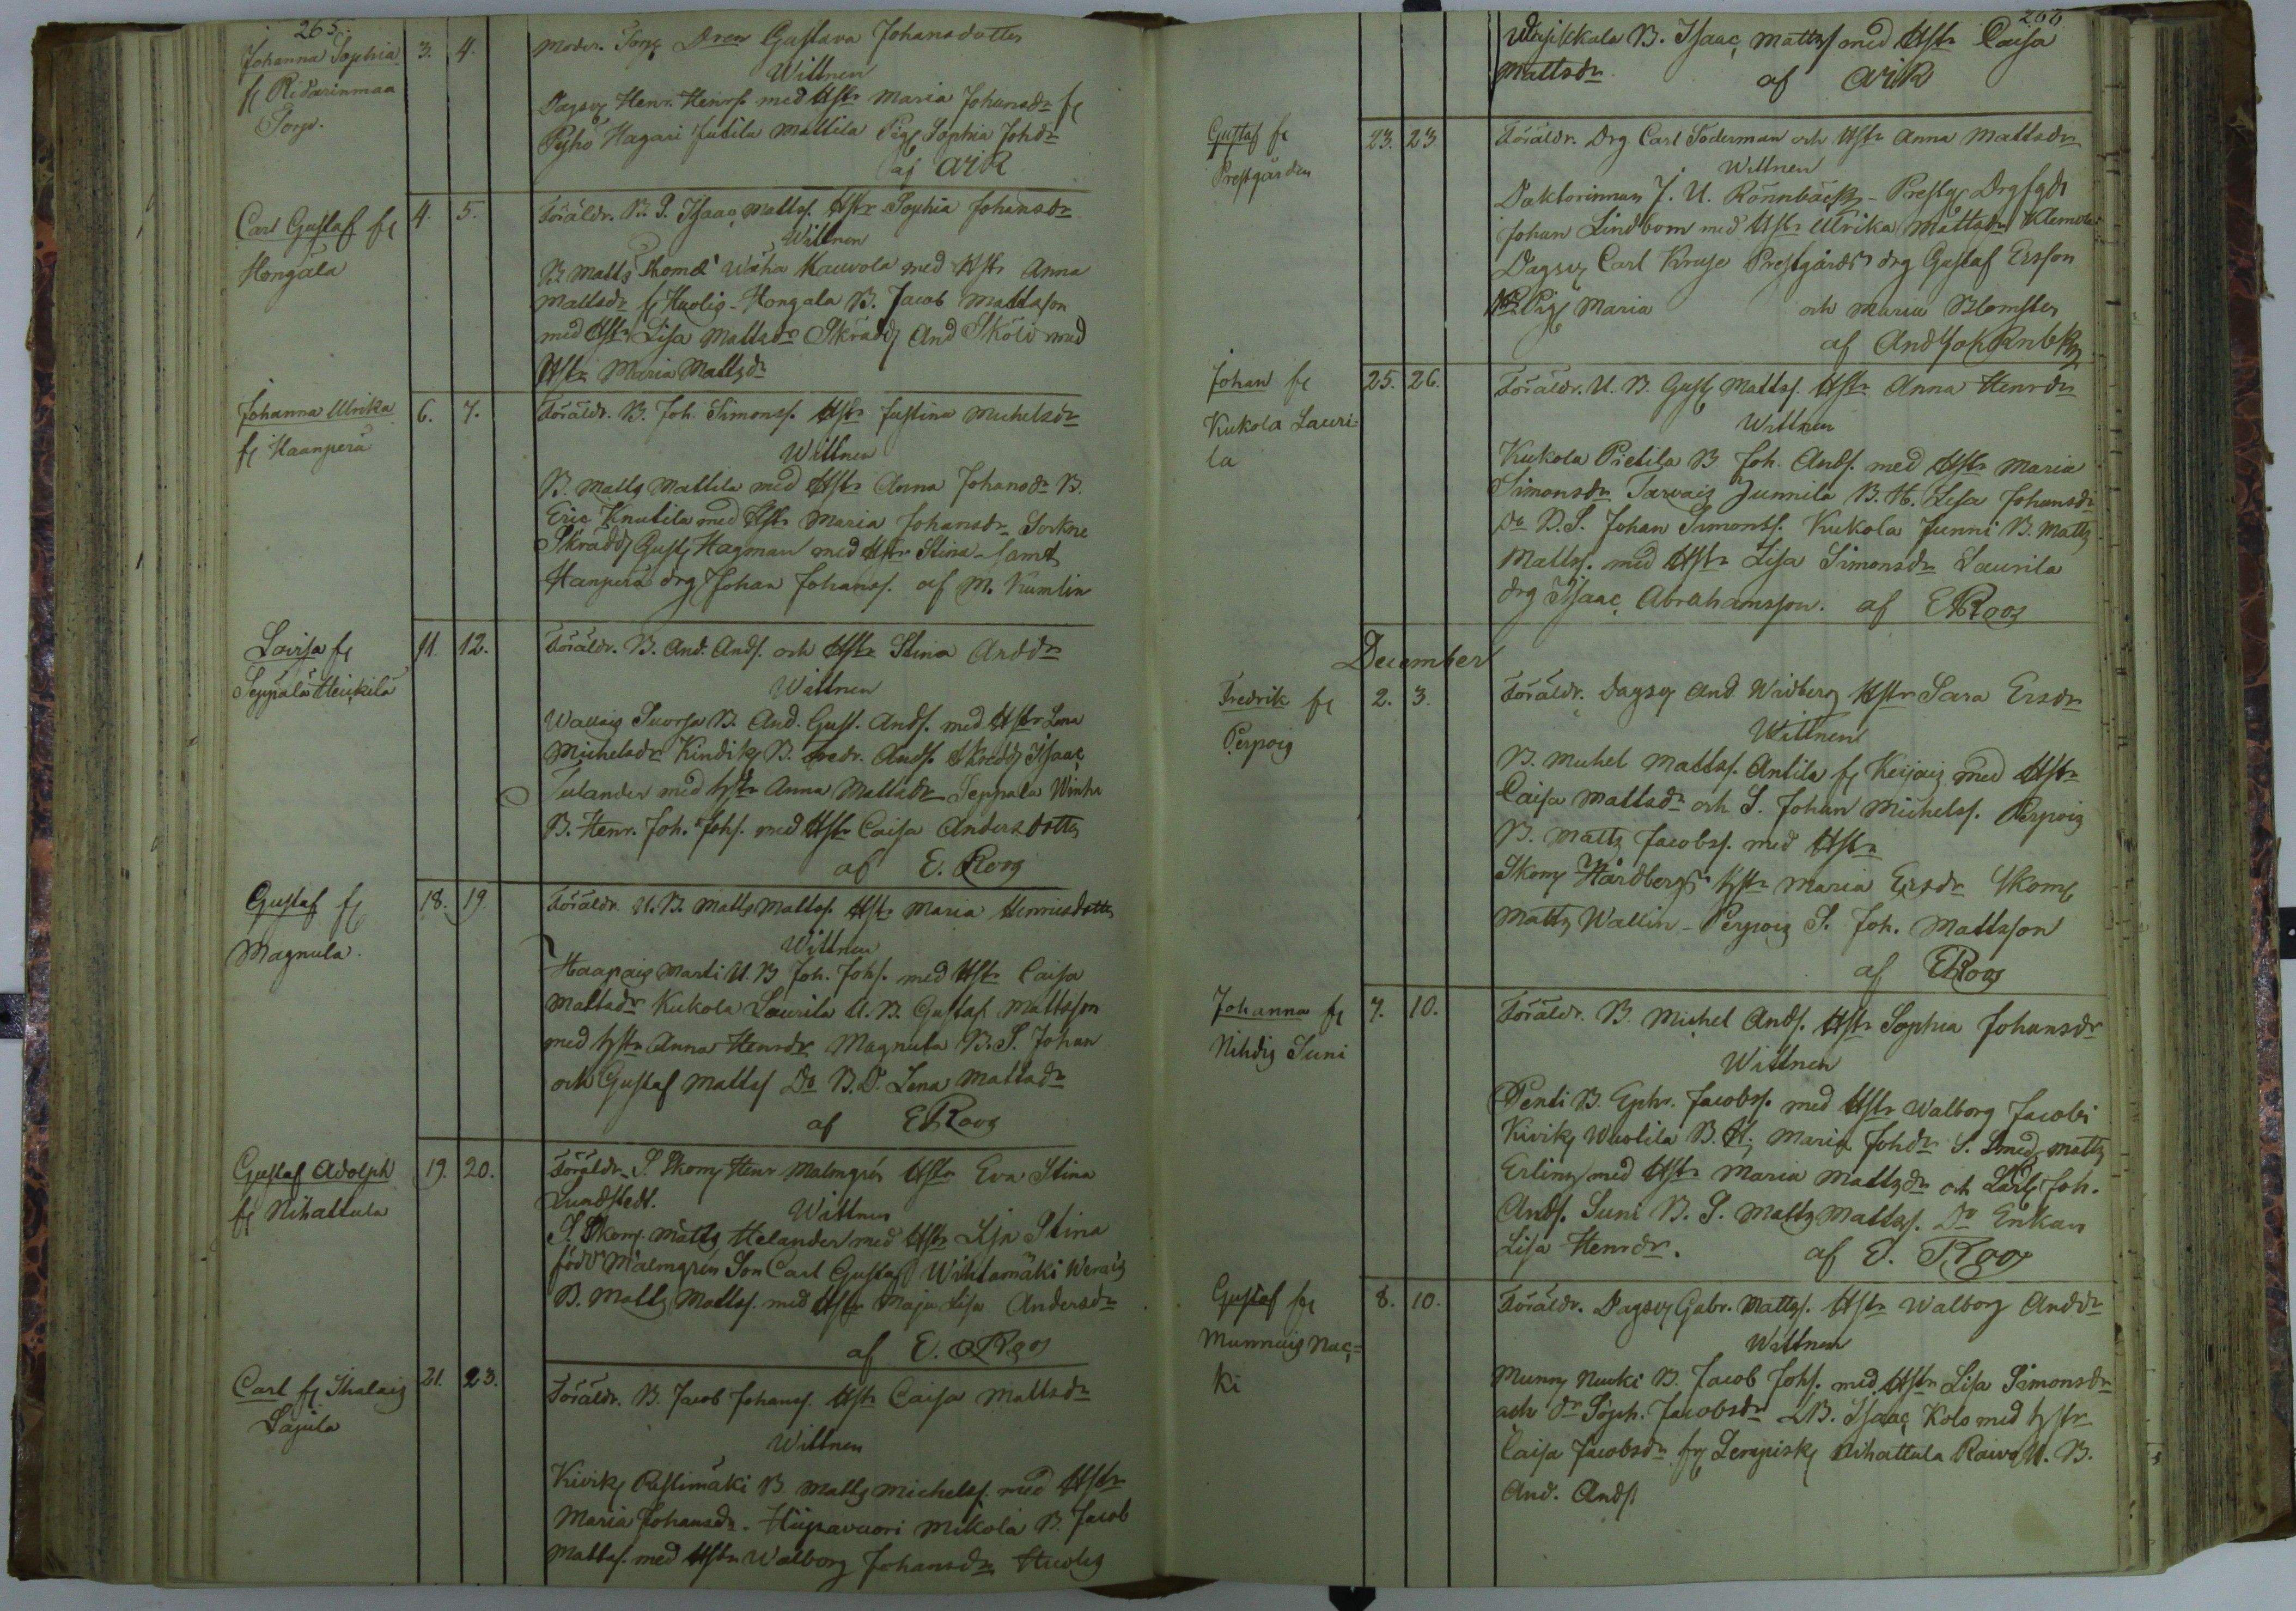 265.
Johanna Sophia
fr Ridarinmaa
Torp.
3. 4.
Moder. Torp Dren Gustava Johansdotter
Wittnen
Dagsv Henr. Henrs. med Hstr Maria Johansdr fr
Pyhö Hagari Jutila Mattila Pig Sophia Johdr
af AWR
Carl Gustaf fr
Hongala
4. 5.
Föräldr. B. S. Isaac Matts. Hstr Sophia Johansdr
Wittnen
B Matts Thomæ Wäha Kauvola med Hstr Anna
Mattsdr fr Huolis-Hongala B. Jacob Mattsson
med Hstr Lisa Mattsdr Skrädd And Sköld med
Hstr Maria Mattsdr
Johanna Ulrika
fr Haanperä
6. 7.
Föräldr. B. Joh. Simonss. Hstr Justina Michelsdr
Wittnen
B. Matts Mattila med Hstr Anna Johansdr B.
Eric Knutila med Hstr Maria Johansdr Sockne
Skrädd Gust Hagman med Hstr Stina samt
Hanperä drg Johan Johanss. af M. Kumlin
Lovisa fr
Seppälä Heickilä
11. 12.
Föräldr. B. And. Ands. och Hstr Stina Anddr
Wittnen
Wallais Suorsa B. And. Gust. Ands. med Hstr Lena
Michelsdr Kindik B. Fredr. Ands. Skrädd Isaac
Tulander med hstr Anna Mattsdr Seppala Winha
B. Henr. Joh. Johs. med Hstr Caisa Andersdotter
af E. Roos
Gustaf fr
Magnula.
18. 19.
Föräldr. U. B. Matts Matts. Hstr Maria Henricsdotter
Wittnen
Haapais Marti U. B Joh. Johs. med Hstr Caisa
Mattsdr Kukola Laurila U. B. Gustaf Mattsson
med hstr Anna Henrdr Magnula B. S. Johan
och Gustaf Matts Do B. D. Lena Mattsdr
af E Roos
Gustaf Adolph
fr Nihattula
19. 20.
Föräldr. S. Skom Henr Malmgrén Hstr Eva Stina
Lundstedt.
Wittnen
S. Skom. Matts Helander med Hstr Lisa Stina
född Malmgrén Son Carl Gustaf Wihtamäki Werais
B. Matts Matts. med Hstr Maja Lisa Andersdr
af E. Roos
Carl fr Ihalais
Säjula
21. 23.
Föräldr. B. Jacob Johanss. Hstr Caisa Mattsdr
Wittnen
Kivik Ristimäki B. Matts Michelss. med Hstr
Maria Johansdr. Hujsavuori Mikola B. Jacob
Matts. med Hstr Walborg Johansdr Huolis
266
Wasikkala B. Isaac Matts med Hstr Caisa
Mattsdr af AWR
Gustaf fr
Prestgården
23. 23
Föräldr. Drg Carl Söderman och Hstr Anna Mattsdr
Wittnen
Doktorinnan J. U. Rönnbäck - Prestg Drgsgdr
Johan Lindbom med Hstr Ulrika Mattsdr Klemola
Dagsv Carl Kruse Prestgårds drg Gustaf Ersson
Pig Maria och Maria Blomster
af And Joh Rnbk
Johan fr
Kukola Lauri-
la
25. 26.
Föräldr. U. B. Gust Matts. Hstr Anna Henrdr
Wittnen
Kukola Pietila B Joh. Ands. med Hstr Maria
Simonsdr Tarvais Junnila B. H. Lisa Johansdr
Do B. S. Johan Simonss. Kukola Junni B. Matts
Matts. med Hstr Lisa Simonsdr Laurila
drg Isaac Abrahamsson. af E Roos
December
Fredrik fr
Perpois
2. 3.
Föräldr. Dagsv And. Widberg Hstr Sara Ersdr
Wittnen
B. Michel Matts. Antila fr Keijais med Hstr
Caisa Mattsdr och S. Johan Michelss. Perpois
B. Matts Jacobss. med Hstr
Skom Hårdbergs hstr Maria Ersdr Skom
Matts Wallin - Perpois S. Joh. Mattsson
af E Roos
Johanna fr
Nihdis Suni
7. 10.
Föräldr. B. Michel Ands. Hstr Sophia Johansdr
Wittnen
Penti B. Ephr. Jacobss. med Hstr Walborg Jacobi
Kivik Wuolila B. H. Maria Johdr S. Smed Matts
Erling med Hstr Maria Mattsdr och Lärl Joh.
Ands. Suni B. S. Matts Matts. Do Enkan
Lisa Henrdr. af E. Roos
Gustaf fr
Munnuis Nuc-
ki
8. 10.
Föräldr. Dagsv Gabr. Matts. Hstr Walborg Anddr
Wittnen
Munn Nucki B. Jacob Johs. med Hstr Lisa Simonsdr
och Dr Soph. Jacobsdr LB. Isaac Kolo med hstr
Caisa Jacobsdr fr Lempisk Nihattula Raivo U. B.
And. Ands